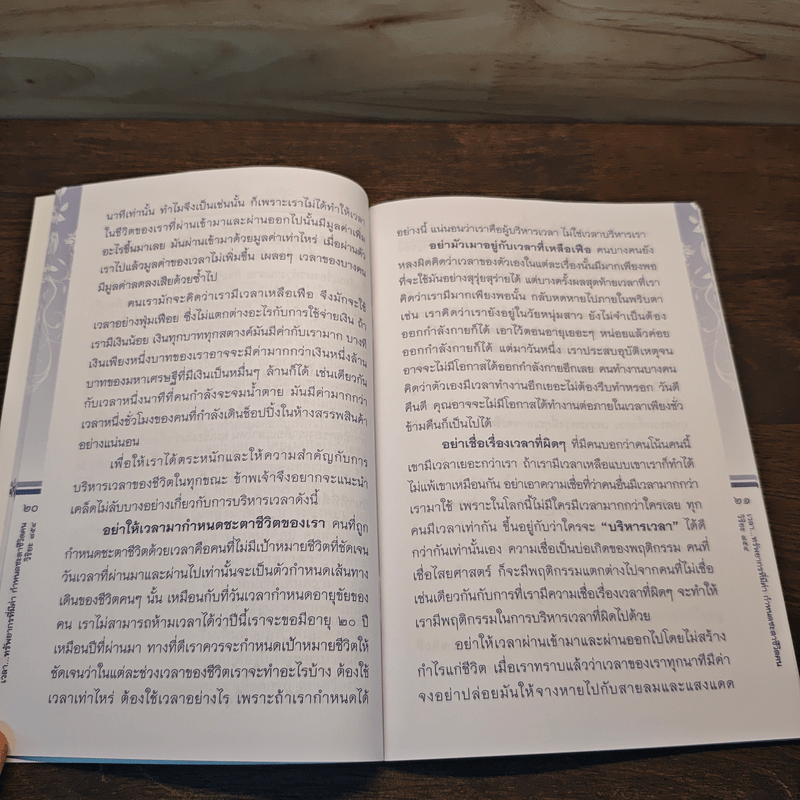 นาทีเท่านั้น ทำไมจึงเป็นเช่นนั้น ก็เพราะเราไม่ได้ทำให้เวลา
ในชีวิตของเราที่ผ่านเข้ามาและผ่านออกไปนั้นมีมูลค่าเพิ่ม
อะไรขึ้นมาเลย มันผ่านเข้ามาด้วยมูลค่าเท่าไหร่ เมื่อผ่านตัว
เราไปแล้วมูลค่าของเวลาไม่เพิ่มขึ้น เผลอๆ เวลาของบางคน
มีมูลค่าลดลงเสียด้วยซ้ำไป
คนเรามักจะคิดว่าเรามีเวลาเหลือเฟือ จึงมักจะใช้
เวลาอย่างฟุ่มเฟือย ซึ่งไม่แตกต่างอะไรกับการใช้จ่ายเงิน ถ้า
เรามีเงินน้อย เงินทุกบาททุกสตางค์มันมีค่ากับเรามาก บางที
เงินเพียงหนึ่งบาทของเราอาจจะมีค่ามากกว่าเงินหนึ่งล้าน
บาทของมหาเศรษฐีที่มีเงินเป็นหมื่นๆ ล้านก็ได้ เช่นเดียวกัน
กับเวลาหนึ่งนาทีที่คนกำลังจะจมน้ำตาย มันมีค่ามากกว่า
เวลาหนึ่งชั่วโมงของคนที่กำลังเดินช็อปปิ้งในห้างสรรพสินค้า
อย่างแน่นอน
เพื่อให้เราได้ตระหนักและให้ความสำคัญกับการ
บริหารเวลาของชีวิตในทุกขณะ ข้าพเจ้าจึงอยากจะแนะนำ
เคล็ดไม่ลับบางอย่างเกี่ยวกับการบริหารเวลาดังนี้
อย่าให้เวลามากำหนดชะตาชีวิตของเรา คนที่ถูก
กำหนดชะตาชีวิตด้วยเวลาคือคนที่ไม่มีเป้าหมายชีวิตที่ชัดเจน
วันเวลาที่ผ่านมาและผ่านไปเท่านั้นจะเป็นตัวกำหนดเส้นทาง
เดินของชีวิตคนๆ นั้น เหมือนกับที่วันเวลากำหนดอายุขัยของ
คน เราไม่สามารถห้ามเวลาได้ว่าปีนี้เราจะขอมีอายุ ๒๐ ปี
เหมือนปีที่ผ่านมา ทางที่ดีเราควรจะกำหนดเป้าหมายชีวิตให้
ชัดเจนว่าในแต่ละช่วงเวลาของชีวิตเราจะทำอะไรบ้าง ต้องใช้
เวลาเท่าไหร่ ต้องใช้เวลาอย่างไร เพราะถ้าเรากำหนดได้
๒๐
เวลา...ทรัพยากรที่มีค่า กำหนดชะตาชีวิตคน
อย่างนี้ แน่นอนว่าเราคือผู้บริหารเวลา ไม่ใช่เวลาบริหารเรา
อย่ามัวเมาอยู่กับเวลาที่เหลือเฟือ คนบางคนยัง
หลงผิดคิดว่าเวลาของตัวเองในแต่ละเรื่องนั้นมีมากเพียงพอ
ที่จะใช้มันอย่างสุรุ่ยสุร่ายได้ แต่บางครั้งผลสุดท้ายเวลาที่เรา
คิดว่าเรามีมากเพียงพอนั้น กลับหดหายไปภายในพริบตา
เช่น เราคิดว่าเรายังอยู่ในวัยหนุ่มสาว ยังไม่จำเป็นต้อง
ออกกำลังกายก็ได้ เอาไว้ตอนอายุเยอะๆ หน่อยแล้วค่อย
ออกกำลังกายก็ได้ แต่มาวันหนึ่ง เราประสบอุบัติเหตุจน
อาจจะไม่มีโอกาสได้ออกกำลังกายอีกเลย คนทำงานบางคน
คิดว่าตัวเองมีเวลาทำงานอีกเยอะไม่ต้องรีบทำหรอก วันดี
คืนดี คุณอาจจะไม่มีโอกาสได้ทำงานต่อภายในเวลาเพียงชั่ว
ข้ามคืนก็เป็นไปได้
อย่าเชื่อเรื่องเวลาที่ผิดๆ ที่มีคนบอกว่าคนโน้นคนนี้
เขามีเวลาเยอะกว่าเรา ถ้าเรามีเวลาเหลือแบบเขาเราก็ทำได้
ไม่แพ้เขาเหมือนกัน อย่าเอาความเชื่อที่ว่าคนอื่นมีเวลามากกว่า
เรามาใช้ เพราะในโลกนี้ไม่มีใครมีเวลามากกว่าใครเลย ทุก
คนมีเวลาเท่ากัน ขึ้นอยู่กับว่าใครจะ “บริหารเวลา” ได้ดี
กว่ากันเท่านั้นเอง ความเชื่อเป็นบ่อเกิดของพฤติกรรม คนที่
เชื่อไสยศาสตร์ ก็จะมีพฤติกรรมแตกต่างไปจากคนที่ไม่เชื่อ
เช่นเดียวกันกับการที่เรามีความเชื่อเรื่องเวลาที่ผิดๆ จะทำให้
เรามีพฤติกรรมในการบริหารเวลาที่ผิดไปด้วย
อย่าให้เวลาผ่านเข้ามาและผ่านออกไปโดยไม่สร้าง
กำไรแก่ชีวิต เมื่อเราทราบแล้วว่าเวลาของเราทุกนาทีมีค่า
จงอย่าปล่อยมันให้จางหายไปกับสายลมและแสงแดด
๒๑
เวลา...ทรัพยากรที่มีค่า กำหนดชะตาชีวิตคน